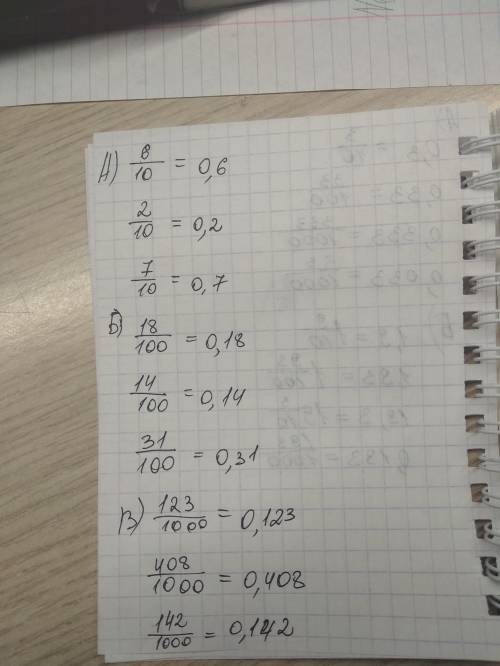 А) 6/10 = 0,6
2/10 = 0,2
7/10 = 0,7
Б) 18/100 = 0,18
14/100 = 0,14
31/100 = 0,31
В) 123/1000 = 0,123
408/1000 = 0,408
142/1000 = 0,142